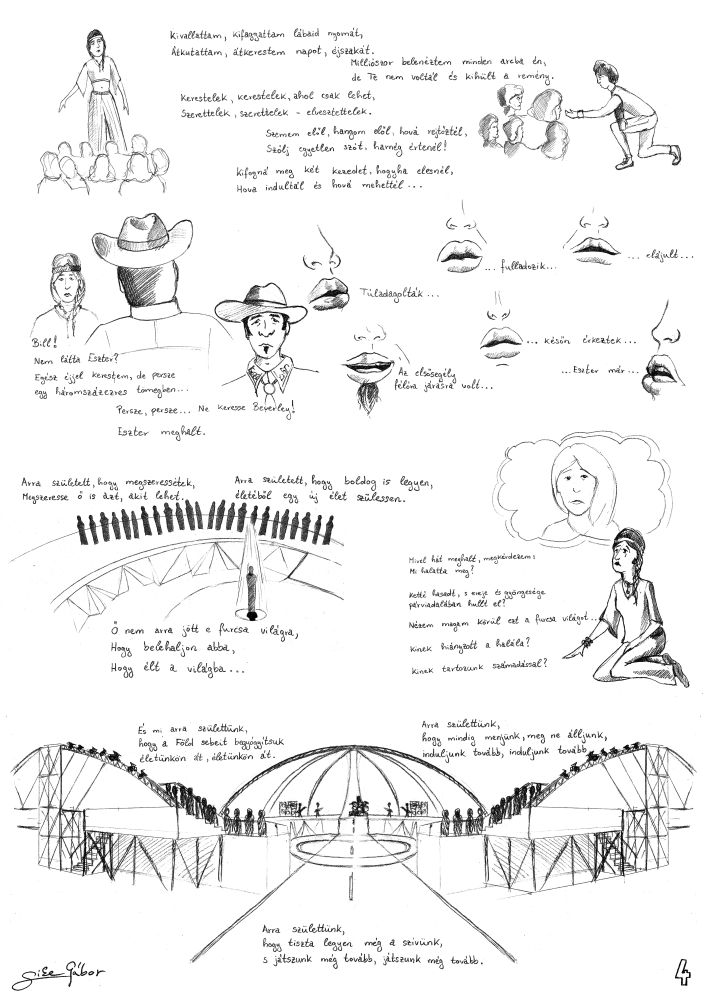 Kivallattam, kifaggattam lábaid nyomát,
Átkutattam, átkerestem napot, éjszakát.
Milliószor belenéztem minden arcba én,
de Te nem voltál és kihűlt a remény.
Kerestelek, kerestelek, ahol csak lehet,
Szerettelek, szerettelek - elvesztettelek.
Szemem elől, hangom elől, hová rejtőztél,
Szólj egyetlen szót, harnég értenél!
Kifogná meg két kezedet, hogyha elesnél,
Hova indultál és hová mehettél...
... fulladozik...
... elájult...
Túladagolták...
... későn érkeztek...
Bill!
Nem látta Eszter?
Egész éjjel kerestem, de persze
egy háromszázezres tömegben...
Az elsősegély
félóra járásra volt...
...Eszter már...
Persze, persze... Ne keresse Beverley!
Eszter meghalt.
Arra született, hogy megszeressétek,
Megszeresse ő is azt, akit lehet.
Arra született, hogy boldog is legyen,
életéből egy új élet szülessen.
Ő nem arra jött e furcsa világra,
Hogy belehaljon abba,
Hogy élt a világba...
Mivel hát meghalt, megkérdezem:
Mi halatta meg?
Ketté hasadt, s ereje és gyöngesége
párviadalában hullt el?
Nézem magam körül ezt a furcsa világot...
Kinek hiányzott a halála?
Kinek tartozunk számadással?
És mi arra születtünk,
hogy a Föld sebeit begyógyítsuk
életünkön át, életünkön át.
Arra születtünk,
hogy mindig menjünk, meg ne álljunk,
induljunk tovább, induljunk tovább
Arra születtünk,
hogy tiszta legyen még a szívünk,
s játszunk még tovább, játszunk még tovább.
Gise Gábor
4